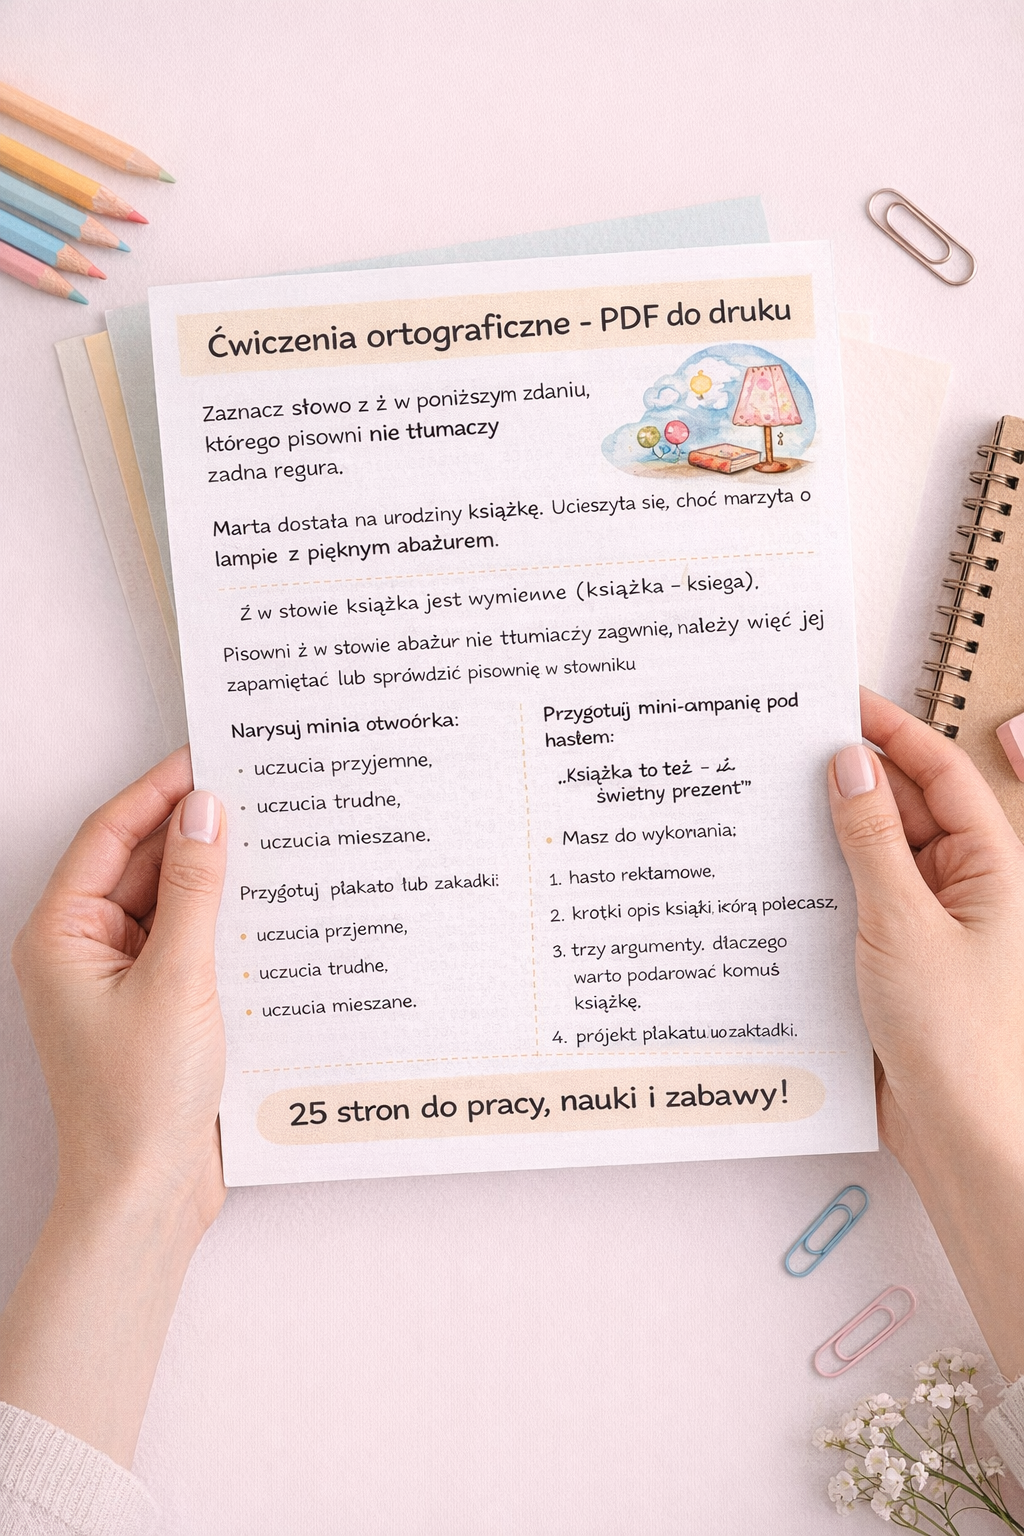 Ćwiczenia ortograficzne - PDF do druku
Zaznacz słowo z ż w poniższym zdaniu,
którego pisowni nie tłumaczy
zadna regura.
Marta dostała na urodziny książkę. Ucieszyta się, choć marzyta o
lampie z pięknym abażurem.
Ź w stowie książka jest wymienne (książka – ksiega).
Pisowni ż w stowie abażur nie tłumiaczy zagwnie, należy więć jej
zapamiętać lub spròwdzić pisownię w stowniku
Narysuj minia otwoórka:
• uczucia przyjemne,
• uczucia trudne,
• uczucia mieszane.
Przygotuj plakato łub zakadki:
• uczucia przjemne,
• uczucia trudne,
• uczucia mieszane.
Przygotuj mini-ampanię pod
hasłem:
„Książka to też –
świetny prezent”
• Masz do wykonania:
1. hasto rektamowe,
2. krotki opis książki, którą polecasz,
3. trzy argumenty. dlaczego
warto podarować komuś
książkę,
4. prójekt plakatu zaktadki.
25 stron do pracy, nauki i zabawy!